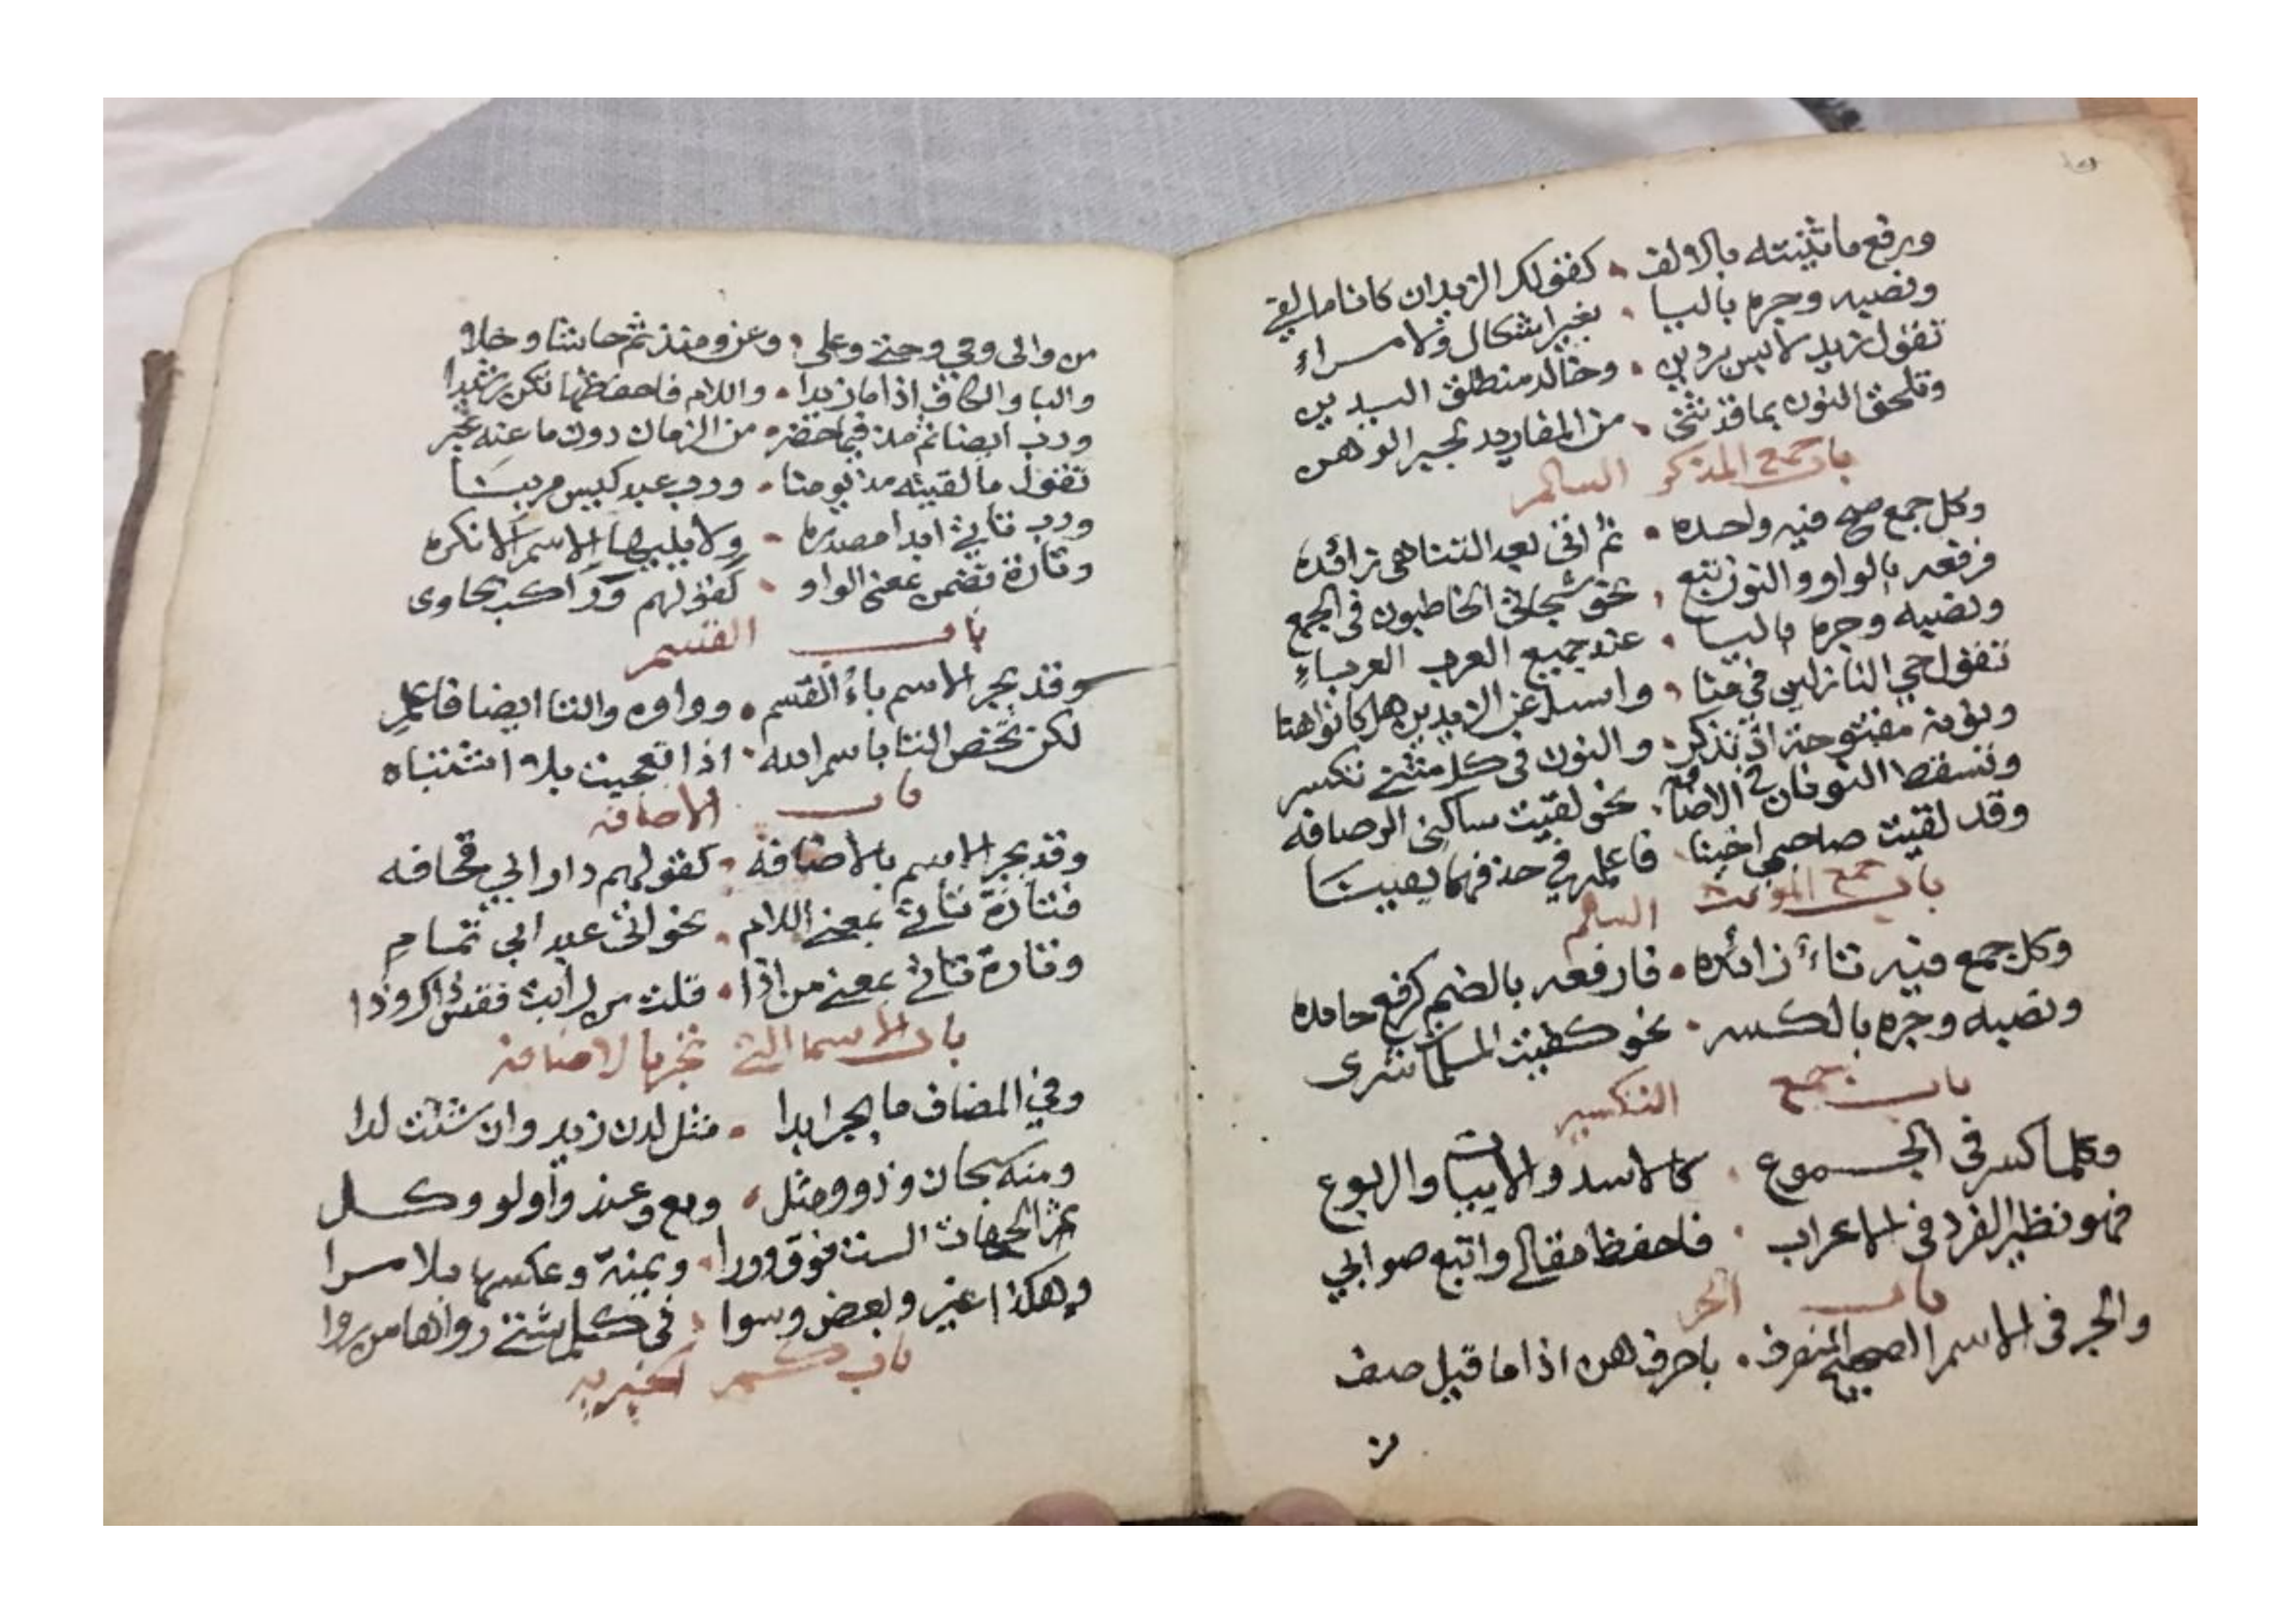 ورفع ما ثنيته بالالف • كقولك الزيدان كانا مالفي
ونصبه وجره باليا • بغير اشكال ولا مراء
تقول زيد لابس بردين • وخالد منطلق اليدين
وتلحق النون بما قد ثني • من المفاريد لجبر الوهن
باب جمع المذكر السالم
وكل جمع صح فيه واحده • ثم اتى بعد التناهى زائده
فرفعه بالواو والنون تبع • نحو شجاني الخاطبون في الجمع
ونصبه وجره باليا • عند جميع العرب العرباء
تقول حي النازلين في منا • واسئل عن الزيدين هل كانوا هنا
ونونه مفتوحة اذ تذكر • والنون في كل مثنى تكسر
وتسقط النونان في الاضافه • نحو لقيت ساكني الرصافه
وقد لقيت صاحبي اخينا • فاعلمه في حذفهما يقينا
باب جمع المونث السالم
وكل جمع فيه تاء زائده • فارفعه بالضم كرفع حامده
ونصبه وجره بالكسر • نحو كفيت المسلمات شرى
باب جمع التكسير
وكلما كسر في الجموع • كالاسد والابيات والربوع
فهو نظير الفرد في الاعراب • فاحفظ مقالي واتبع صوابي
باب الجر
والجر في الاسم الصحيح المنصرف • باحرف هن اذا ما قيل صف
من
من والى وفي وحتى وعلى • وعن ومنذ ثم حاشا وخلا
والبا والكاف اذا ما زيدا • واللام فاحفظها تكن رشيدا
ورب ايضا ثم مذ فيما حضر • من الزمان دون ما عنه غبر
تقول ما لقيته مذ يومنا • ورب عبد كيس مر بنا
ورب تاتي ابدا مصدره • ولا يليها الاسم الا نكره
وتارة تضمر بمعنى الواو • كقولهم وراكب بحاوى
باب القسم
وقد يجر الاسم باء القسم • وواوه والتا ايضا فاعلم
لكن تختص التا باسم الله • اذا تعجبت بلا اشتباه
باب الاضافه
وقد يجر الاسم بالاضافه • كقولهم دار ابي قحافه
فتارة تاتي بمعنى اللام • نحو اتى عبد ابي تمام
وتارة تاتي بمعنى من اذا • قلت من رايت فقس ذاك وذا
باب الاسما التي تجر بالاضافه
وفي المضاف ما يجر ابدا • مثل لدن زيد وان شئت لدا
ومنه سبحان وذو ومثل • ومع وعند واولو وكل
ثم الجهات الست فوق وورا • ويمنة وعكسها بلا مرا
وهكذا غير وبعض وسوا • في كلم شتى رواها من روا
باب كم الخبريه